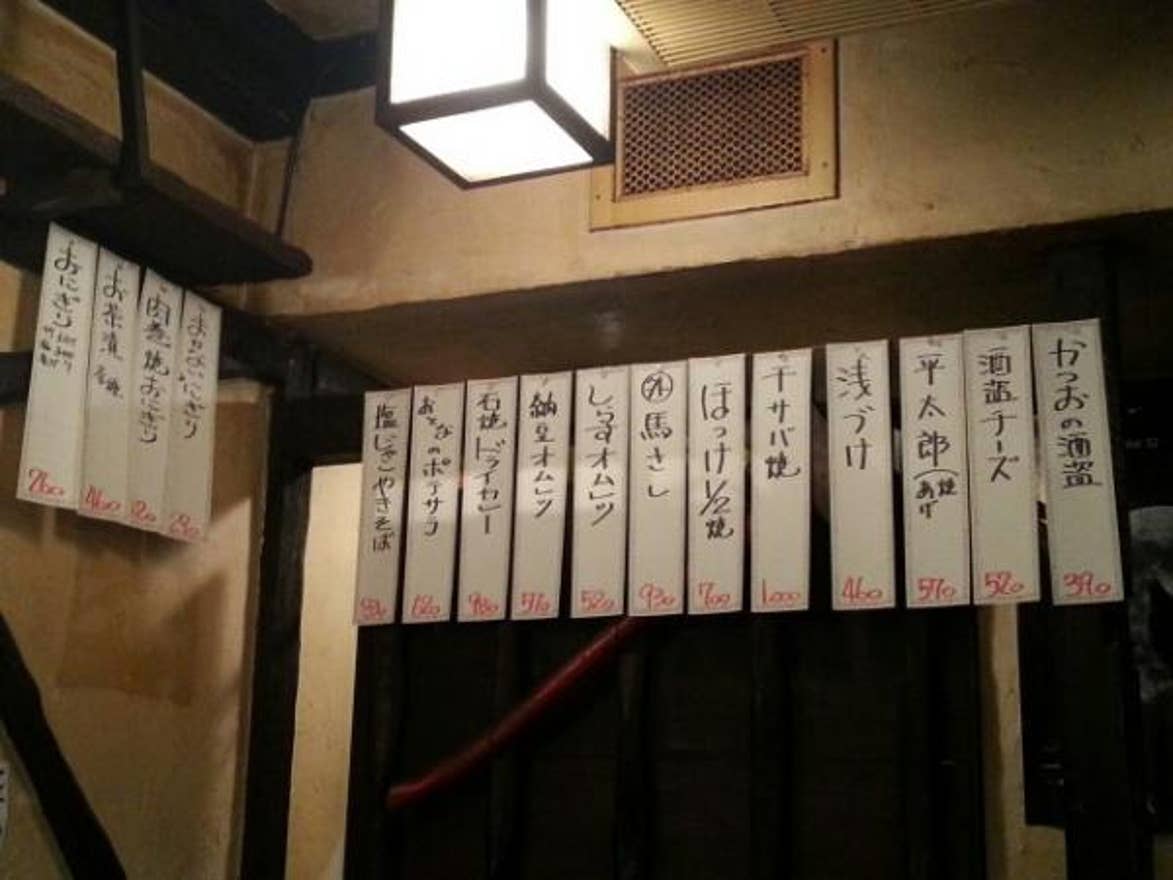 かつおの酒盗
390
酒盗チーズ
520
平太郎(焼 あげ
570
浅づけ
460
干サバ焼
1.000
ほっけ1/2焼
700
馬さし
930
しらすオムレツ
520
納豆オムレツ
570
石焼ドライカレー
780
おとなのポテサラ
620
塩じゃこやきそば
肉巻焼おにぎり
お茶漬
460
おにぎり
260